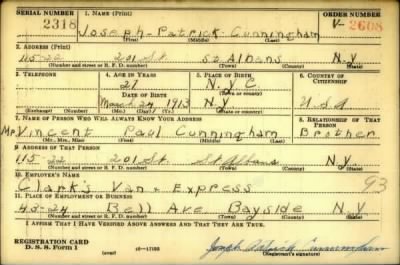 SERIAL NUMBER 1. NAME (Print) ORDER NUMBER
2318 Joseph Patrick Cunningham V-2608
(First) (Middle) (Last)
2. ADDRESS (Print)
115-22 201 St. St Albans N.Y
(Number and street or R. F. D. number) (Town) (County) (State)
3. TELEPHONE 4. AGE IN YEARS 5. PLACE OF BIRTH 6. COUNTRY OF CITIZENSHIP
27 N.Y.C
DATE OF BIRTH (Town or county)
March 24 1913 N.Y U.S.A
(Exchange) (Number) (Mo.) (Day) (Yr.) (State or country)
7. NAME OF PERSON WHO WILL ALWAYS KNOW YOUR ADDRESS 8. RELATIONSHIP OF THAT PERSON
Mr Vincent Paul Cunningham Brother
(Mr., Mrs., Miss) (First) (Middle) (Last)
9. ADDRESS OF THAT PERSON
115-22 201 St. St Albans N.Y.
(Number and street or R. F. D. number) (Town) (County) (State)
10. EMPLOYER'S NAME
Clark's Van & Express 93
11. PLACE OF EMPLOYMENT OR BUSINESS
43-24 Bell Ave Bayside N.Y
(Number and street or R. F. D. number) (Town) (County) (State)
I AFFIRM THAT I HAVE VERIFIED ABOVE ANSWERS AND THAT THEY ARE TRUE.
REGISTRATION CARD
D. S. S. Form 1 (over) 16-17105 Joseph Patrick Cunningham
(Registrant's signature)